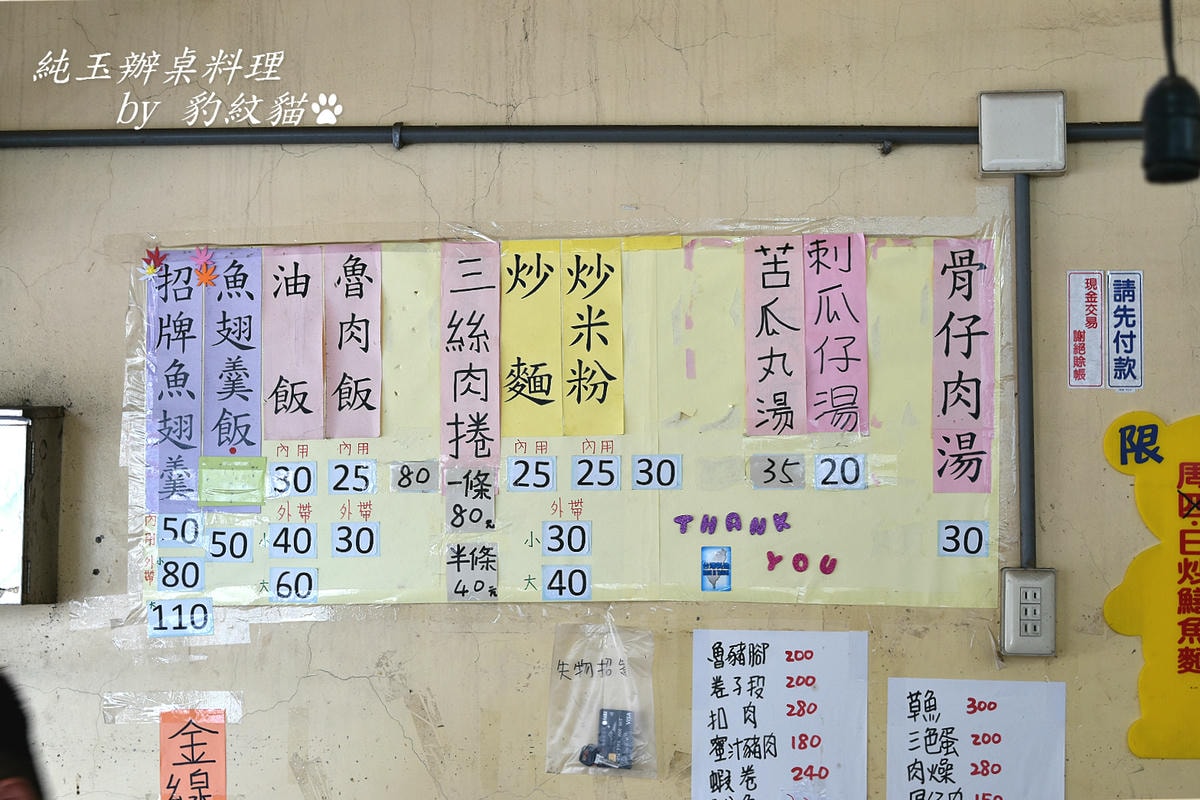 純玉辦桌料理
by 豹紋貓
招牌魚翅羹
內用
50
外帶
小
80
大
110
魚翅羹飯
50
油飯
內用
30
外帶
小
40
大
60
魯肉飯
內用
25
外帶
30
80
三絲肉捲
一條
80元
半條
40元
炒麵
內用
25
炒米粉
內用
25
外帶
小
30
大
40
30
苦瓜丸湯
35
刺瓜仔湯
20
骨仔肉湯
30
THANK
YOU
請先付款
現金交易
謝絕賒帳
限
日炒鱔魚麵
失物招
VISA
金線
魯豬腳 200
卷子段 200
扣肉 280
蜜汁豬肉 180
蝦卷 240
草魚 300
三色蛋 200
肉燥 280
150